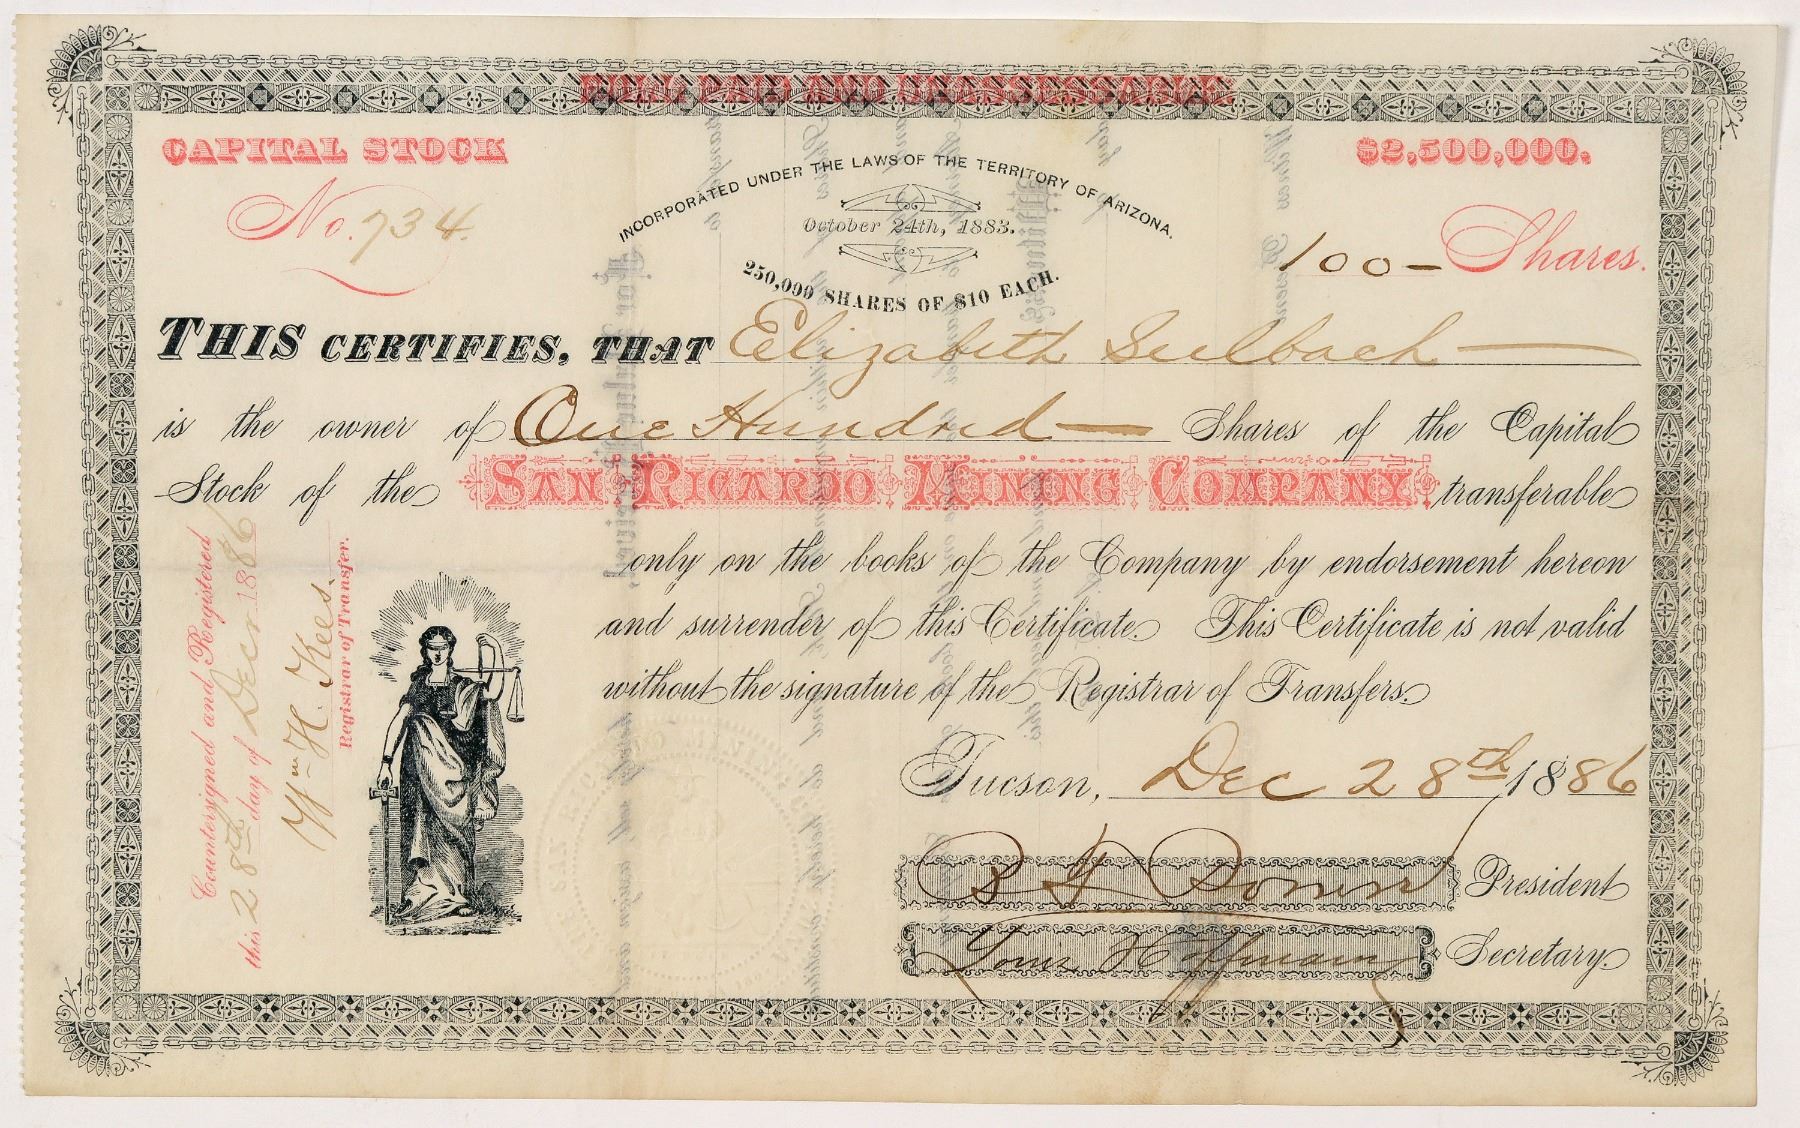 FULL PAID AND UNASSESSABLE.
CAPITAL STOCK
$2,500,000.
INCORPORATED UNDER THE LAWS OF THE TERRITORY OF ARIZONA.
October 24th, 1883.
250,000 SHARES OF $10 EACH.
No. 734.
100 — Shares.
THIS CERTIFIES, THAT Elizabeth Sulbach —
is the owner of One Hundred — Shares of the Capital
Stock of the SAN RICARDO MINING COMPANY transferable
only on the books of the Company by endorsement hereon
and surrender of this Certificate. This Certificate is not valid
without the signature of the Registrar of Transfers.
Tucson, Dec 28th 1886
President
Hoffmann Secretary.
Countersigned and Registered
this 28th day of Decr. 1886
Wm H. Kees.
Registrar of Transfer.